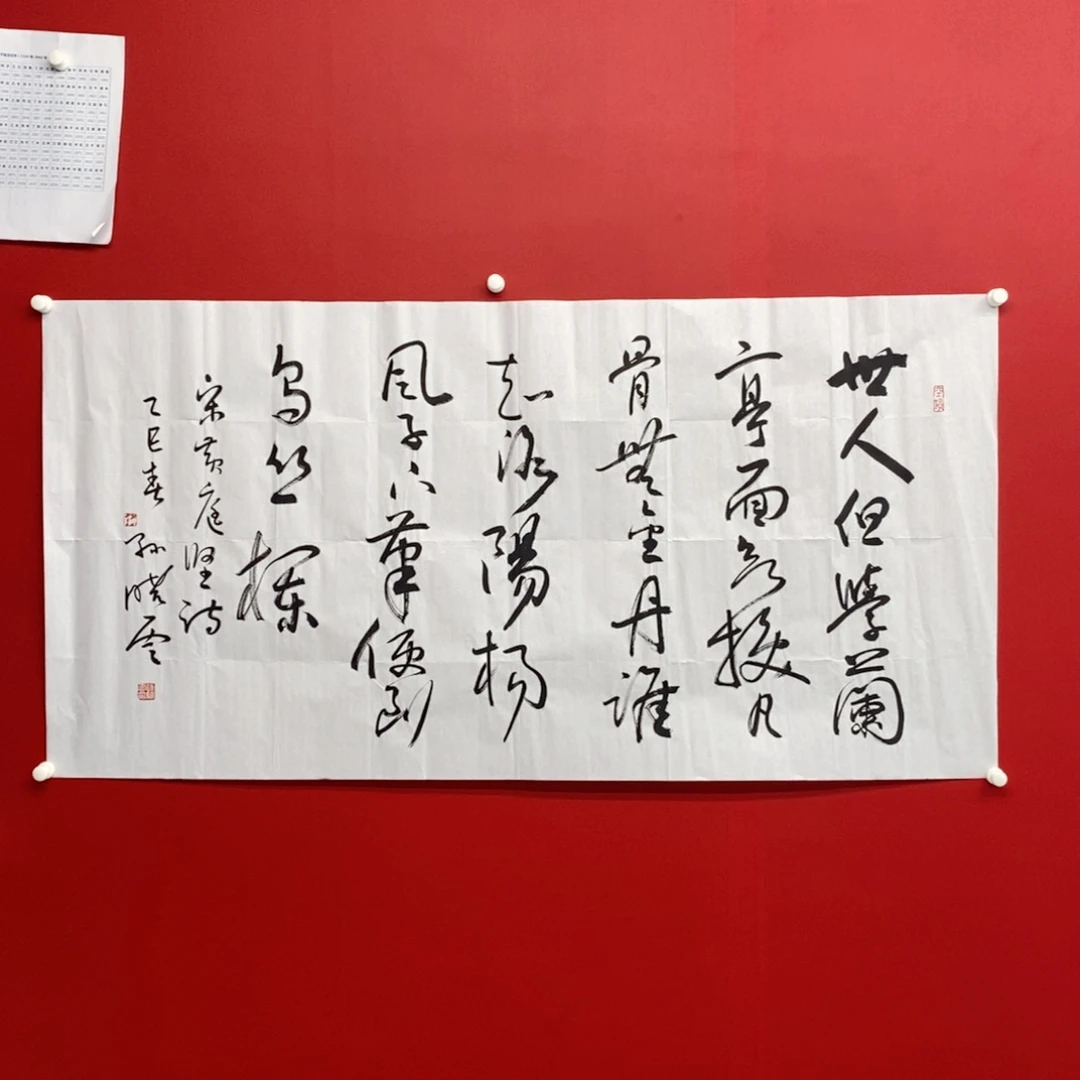 世人但學蘭
亭面欲換凡
骨無金丹誰
知洛陽楊
風子下筆便到
烏絲欄
宋黄庭坚詩
乙巳春
孙曉雲